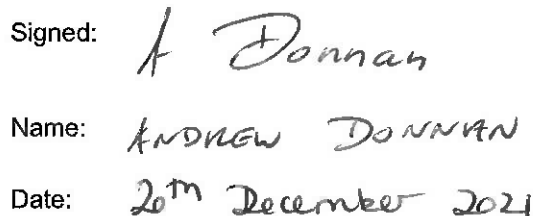 Signed: A Donnan
Name: ANDREW DONNAN
Date: 20th December 2021